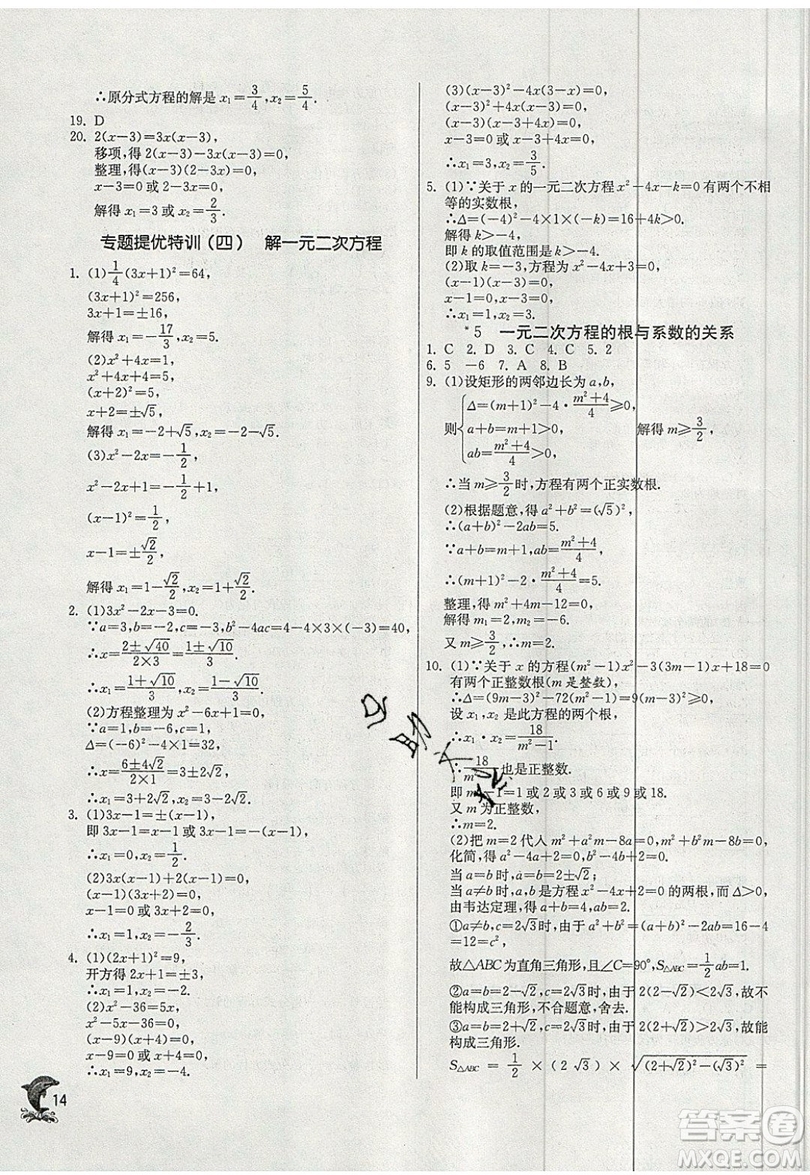 ∴原分式方程的解是 x₁=3/4,x₂=5/4.
19. D
20. 2(x-3)=3x(x-3),
移项,得 2(x-3)-3x(x-3)=0,
整理,得(x-3)(2-3x)=0,
x-3=0 或 2-3x=0,
解得 x₁=3 或 x₂=2/3.
专题提优特训(四) 解一元二次方程
1. (1)1/4(3x+1)²=64,
(3x+1)²=256,
3x+1=±16,
解得 x₁=-17/3,x₂=5.
(2)x²+4x=1,
x²+4x+4=1+4,
(x+2)²=5,
x+2=±√5,
解得 x₁=-2+√5,x₂=-2-√5.
(3)x²-2x=-1/2,
x²-2x+1=-1/2+1,
(x-1)²=1/2,
x-1=±√2/2,
解得 x₁=1-√2/2,x₂=1+√2/2.
2. (1)3x²-2x-3=0.
∵a=3,b=-2,c=-3,b²-4ac=4-4×3×(-3)=40,
∴x=(2±√40)/(2×3)=(1±√10)/3,
∴x₁=(1+√10)/3,x₂=(1-√10)/3.
(2)方程整理为 x²-6x+1=0,
∵a=1,b=-6,c=1,
Δ=(-6)²-4×1=32,
∴x=(6±4√2)/(2×1)=3±2√2,
∴x₁=3+2√2,x₂=3-2√2.
3. (1)3x-1=±(x-1),
即 3x-1=x-1 或 3x-1=-(x-1),
∴x₁=0,x₂=1/2.
(2)3x(x-1)+2(x-1)=0,
(x-1)(3x+2)=0,
x-1=0 或 3x+2=0,
∴x₁=1,x₂=-2/3.
4. (1)(2x+1)²=9,
开方得 2x+1=±3,
∴x₁=1,x₂=-2.
(2)x²-36=5x,
x²-5x-36=0,
(x-9)(x+4)=0,
x-9=0 或 x+4=0,
∴x₁=9,x₂=-4.
14
(3)(x-3)²-4x(3-x)=0,
(x-3)²+4x(x-3)=0,
(x-3)(x-3+4x)=0,
(x-3)(5x-3)=0,
x-3=0 或 5x-3=0,
∴x₁=3,x₂=3/5.
5. (1)∵关于 x 的一元二次方程 x²-4x-k=0 有两个不相
等的实数根,
∴Δ=(-4)²-4×1×(-k)=16+4k>0,
解得 k>-4,
即 k 的取值范围是 k>-4.
(2)取 k=-3,方程为 x²-4x+3=0,
(x-1)(x-3)=0,
x-1=0,x-3=0,
∴x₁=1,x₂=3.
*5 一元二次方程的根与系数的关系
1. C 2. D 3. C 4. C 5. 2
6. 5 -6 7. A 8. B
9. (1)设矩形的两邻边长为 a,b,
则{Δ=(m+1)²-4·(m²+4)/4≥0,
a+b=m+1>0, 解得 m≥3/2,
ab=(m²+4)/4>0,
∴当 m≥3/2时,方程有两个正实数根.
(2)根据题意,得 a²+b²=(√5)²,
∴(a+b)²-2ab=5.
∵a+b=m+1,ab=(m²+4)/4,
∴(m+1)²-2·(m²+4)/4=5.
解得 m₁=2,m₂=-6.
又 m≥3/2,∴m=2.
10. (1)∵关于 x 的方程(m²-1)x²-3(3m-1)x+18=0
有两个正整数根(m 是整数),
∴Δ=(9m-3)²-72(m²-1)=9(m-3)²≥0,
设 x₁,x₂ 是此方程的两个根,
∴x₁·x₂=18/(m²-1).
也是正整数.
-1=1 或 2 或 3 或 6 或 9 或 18.
又 m 为正整数,
∴m=2.
(2)把 m=2 代入 m²+a²m-8a=0,m²+b²m-8b=0,
化简,得 a²-4a+2=0,b²-4b+2=0,
当 a=b 时,a=b=2±√2,
当 a≠b 时,a,b 是方程 x²-4x+2=0 的两根,而 Δ>0,
由韦达定理得 a+b=4>0,ab=2>0,则 a>0,b>0.
①a≠b,c=2√3时,由于 a²+b²=(a+b)²-2ab=16-4
=12=c²,
故△ABC为直角三角形,且∠C=90°,S△ABC=1/2 ab=1.
②a=b=2-√2,c=2√3时,由于 2(2-√2)<2√3,故不
能构成三角形,不合题意,舍去.
③a=b=2+√2,c=2√3时,由于 2(2+√2)>2√3,故能
构成三角形.
S△ABC=1/2×(2√3)×√((2+√2)²-(√3)²)=
答案圈
MXQE.COM